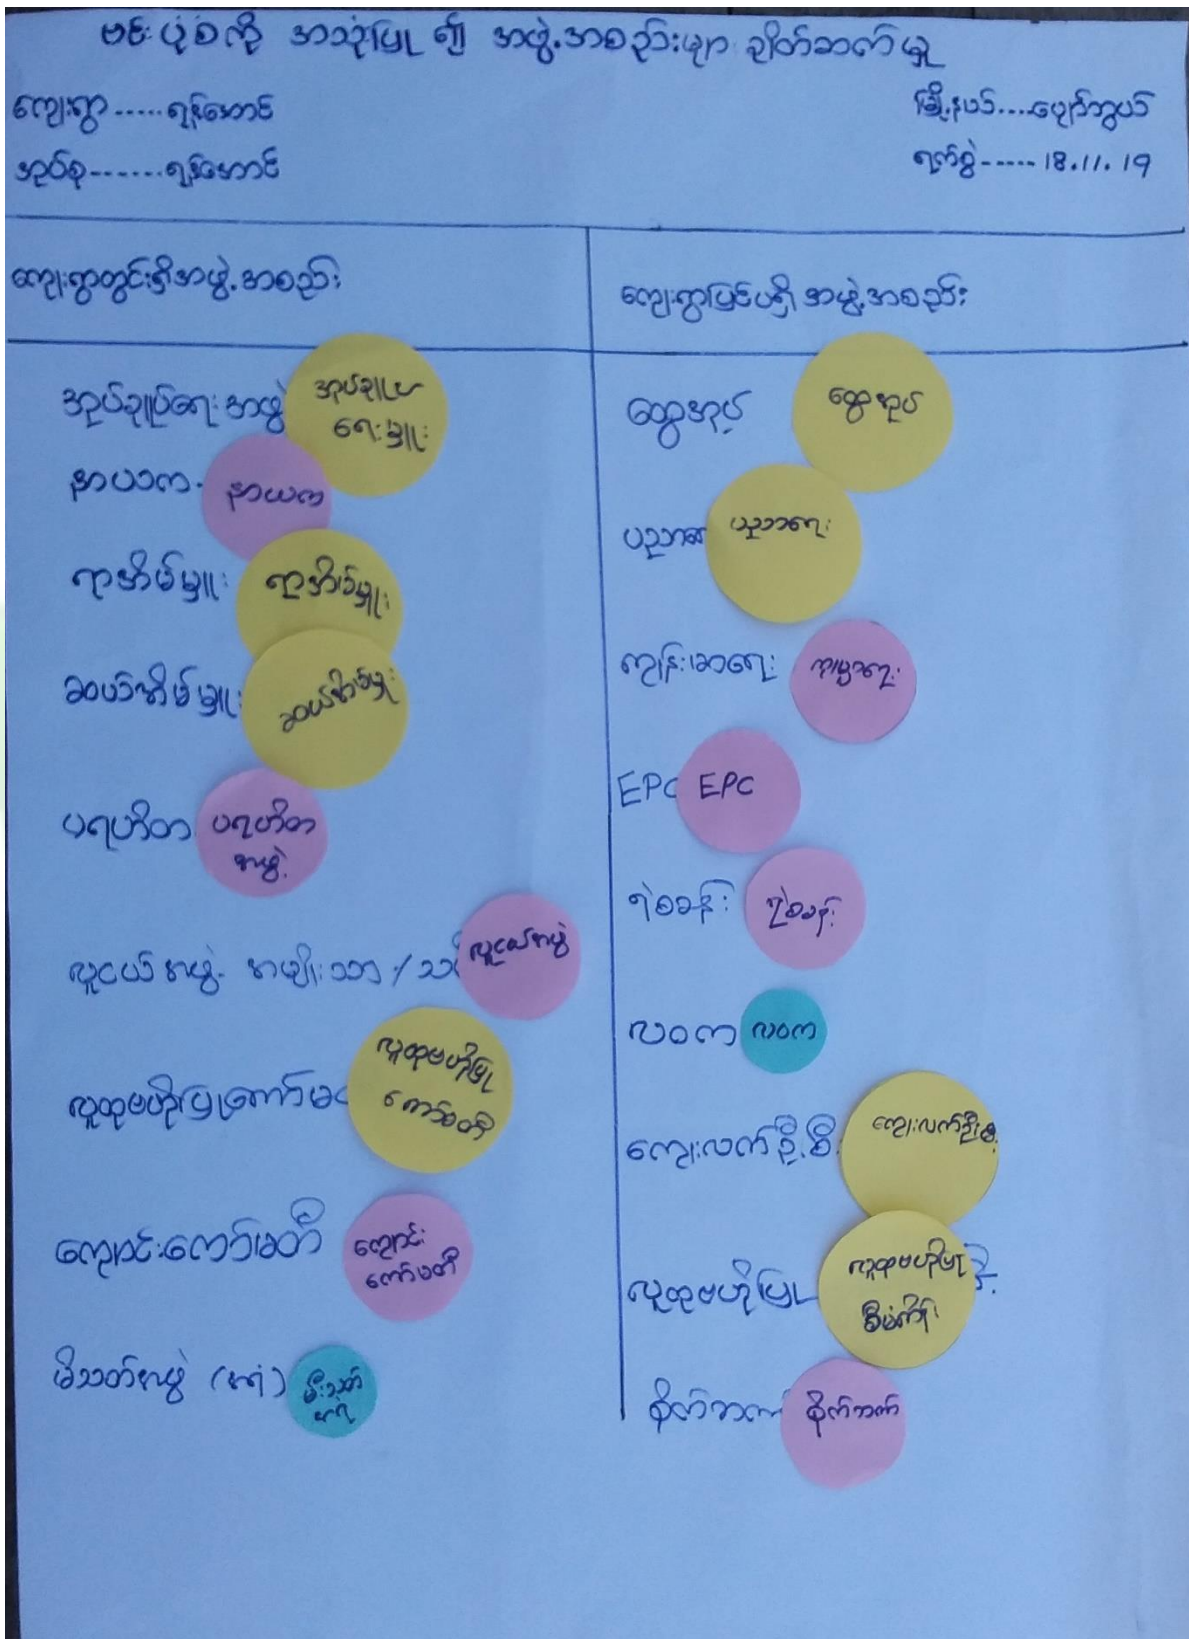 ဗင်းပုံစံကို အသုံးပြု၍ အဖွဲ့အစည်းများ ချိတ်ဆက်မှု
ကျေးရွာ.....ရန်အောင်
မြို့နယ်....ပျော်ဘွယ်
အုပ်စု.......ရန်အောင်
ရက်စွဲ-----18.11.19
ကျေးရွာတွင်းရှိအဖွဲ့အစည်း
ကျေးရွာပြင်ပရှိ အဖွဲ့အစည်း
အုပ်ချုပ်ရေးအဖွဲ့
အုပ်ချုပ်
ရေးမှူး
နာယက
နာယက
ရာအိမ်မှူး
ရာအိမ်မှူး
ဆယ်အိမ်မှူး
ဆယ်အိမ်မှူး
ပရဟိတ
ပရဟိတ
အဖွဲ့
လူငယ်အဖွဲ့ အမျိုးသား/သ
လူငယ်အဖွဲ့
လူထုဗဟိုပြုကော်မ
လူထုဗဟိုပြု
ကော်မတီ
ကျောင်းကော်မတီ
ကျောင်း
ကော်မတီ
မီးသတ်အဖွဲ့ (အရံ)
မီးသတ်
အရံ
ထွေအုပ်
ထွေအုပ်
ပညာရေး
ပညာရေး
ကျန်းမာရေး
ကျန်းမာရေး
EPC
EPC
ရဲစခန်း
ရဲစခန်း
လဝက
လဝက
ကျေးလက်ဦးစီး
ကျေးလက်ဦးစီး
လူထုဗဟိုပြု
လူထုဗဟိုပြု
စီမံကိန်း
စိုက်ဘဏ်
စိုက်ဘဏ်